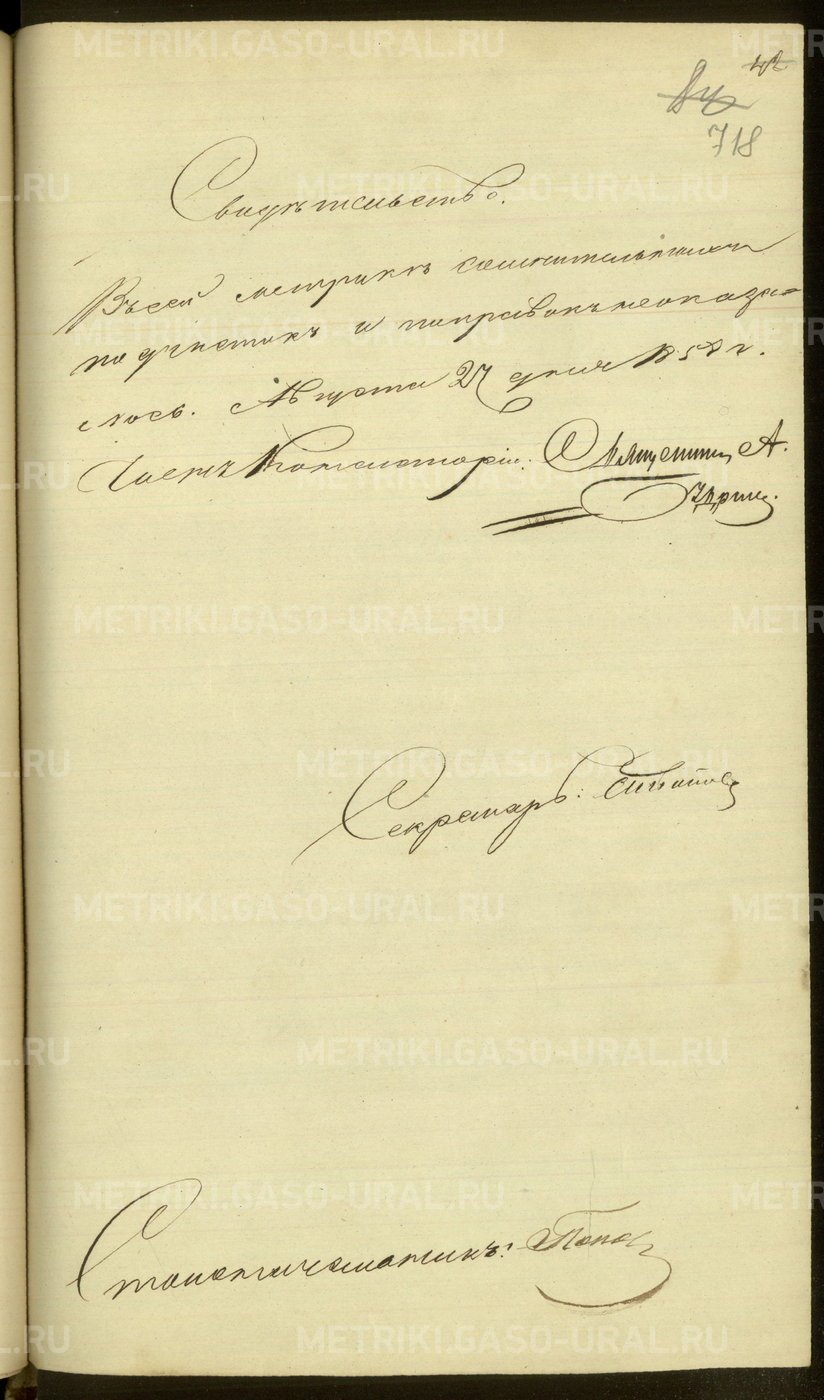 718
Свидѣтельство.
Въ сей метрикѣ сомнительныхъ
подчистокъ и поправокъ не оказа=
лось. Августа 27 дня 1858 г.
Членъ Консисторіи: Священник А.
Секретарь:
Столоначальникъ: Попов
METRIKI.GASO-URAL.RU